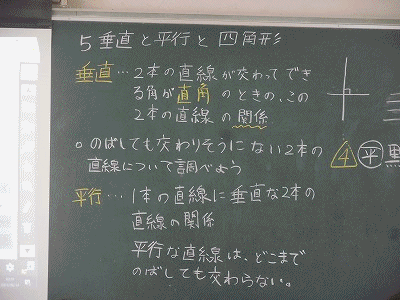 5 垂直と平行と四角形
垂直…2本の直線が交わってでき
る角が直角のときの、この
2本の直線の関係
○のばしても交わりそうにない2本の
直線について調べよう
平行…1本の直線に垂直な2本の
直線の関係
平行な直線は、どこまで
のばしても交わらない。
④平